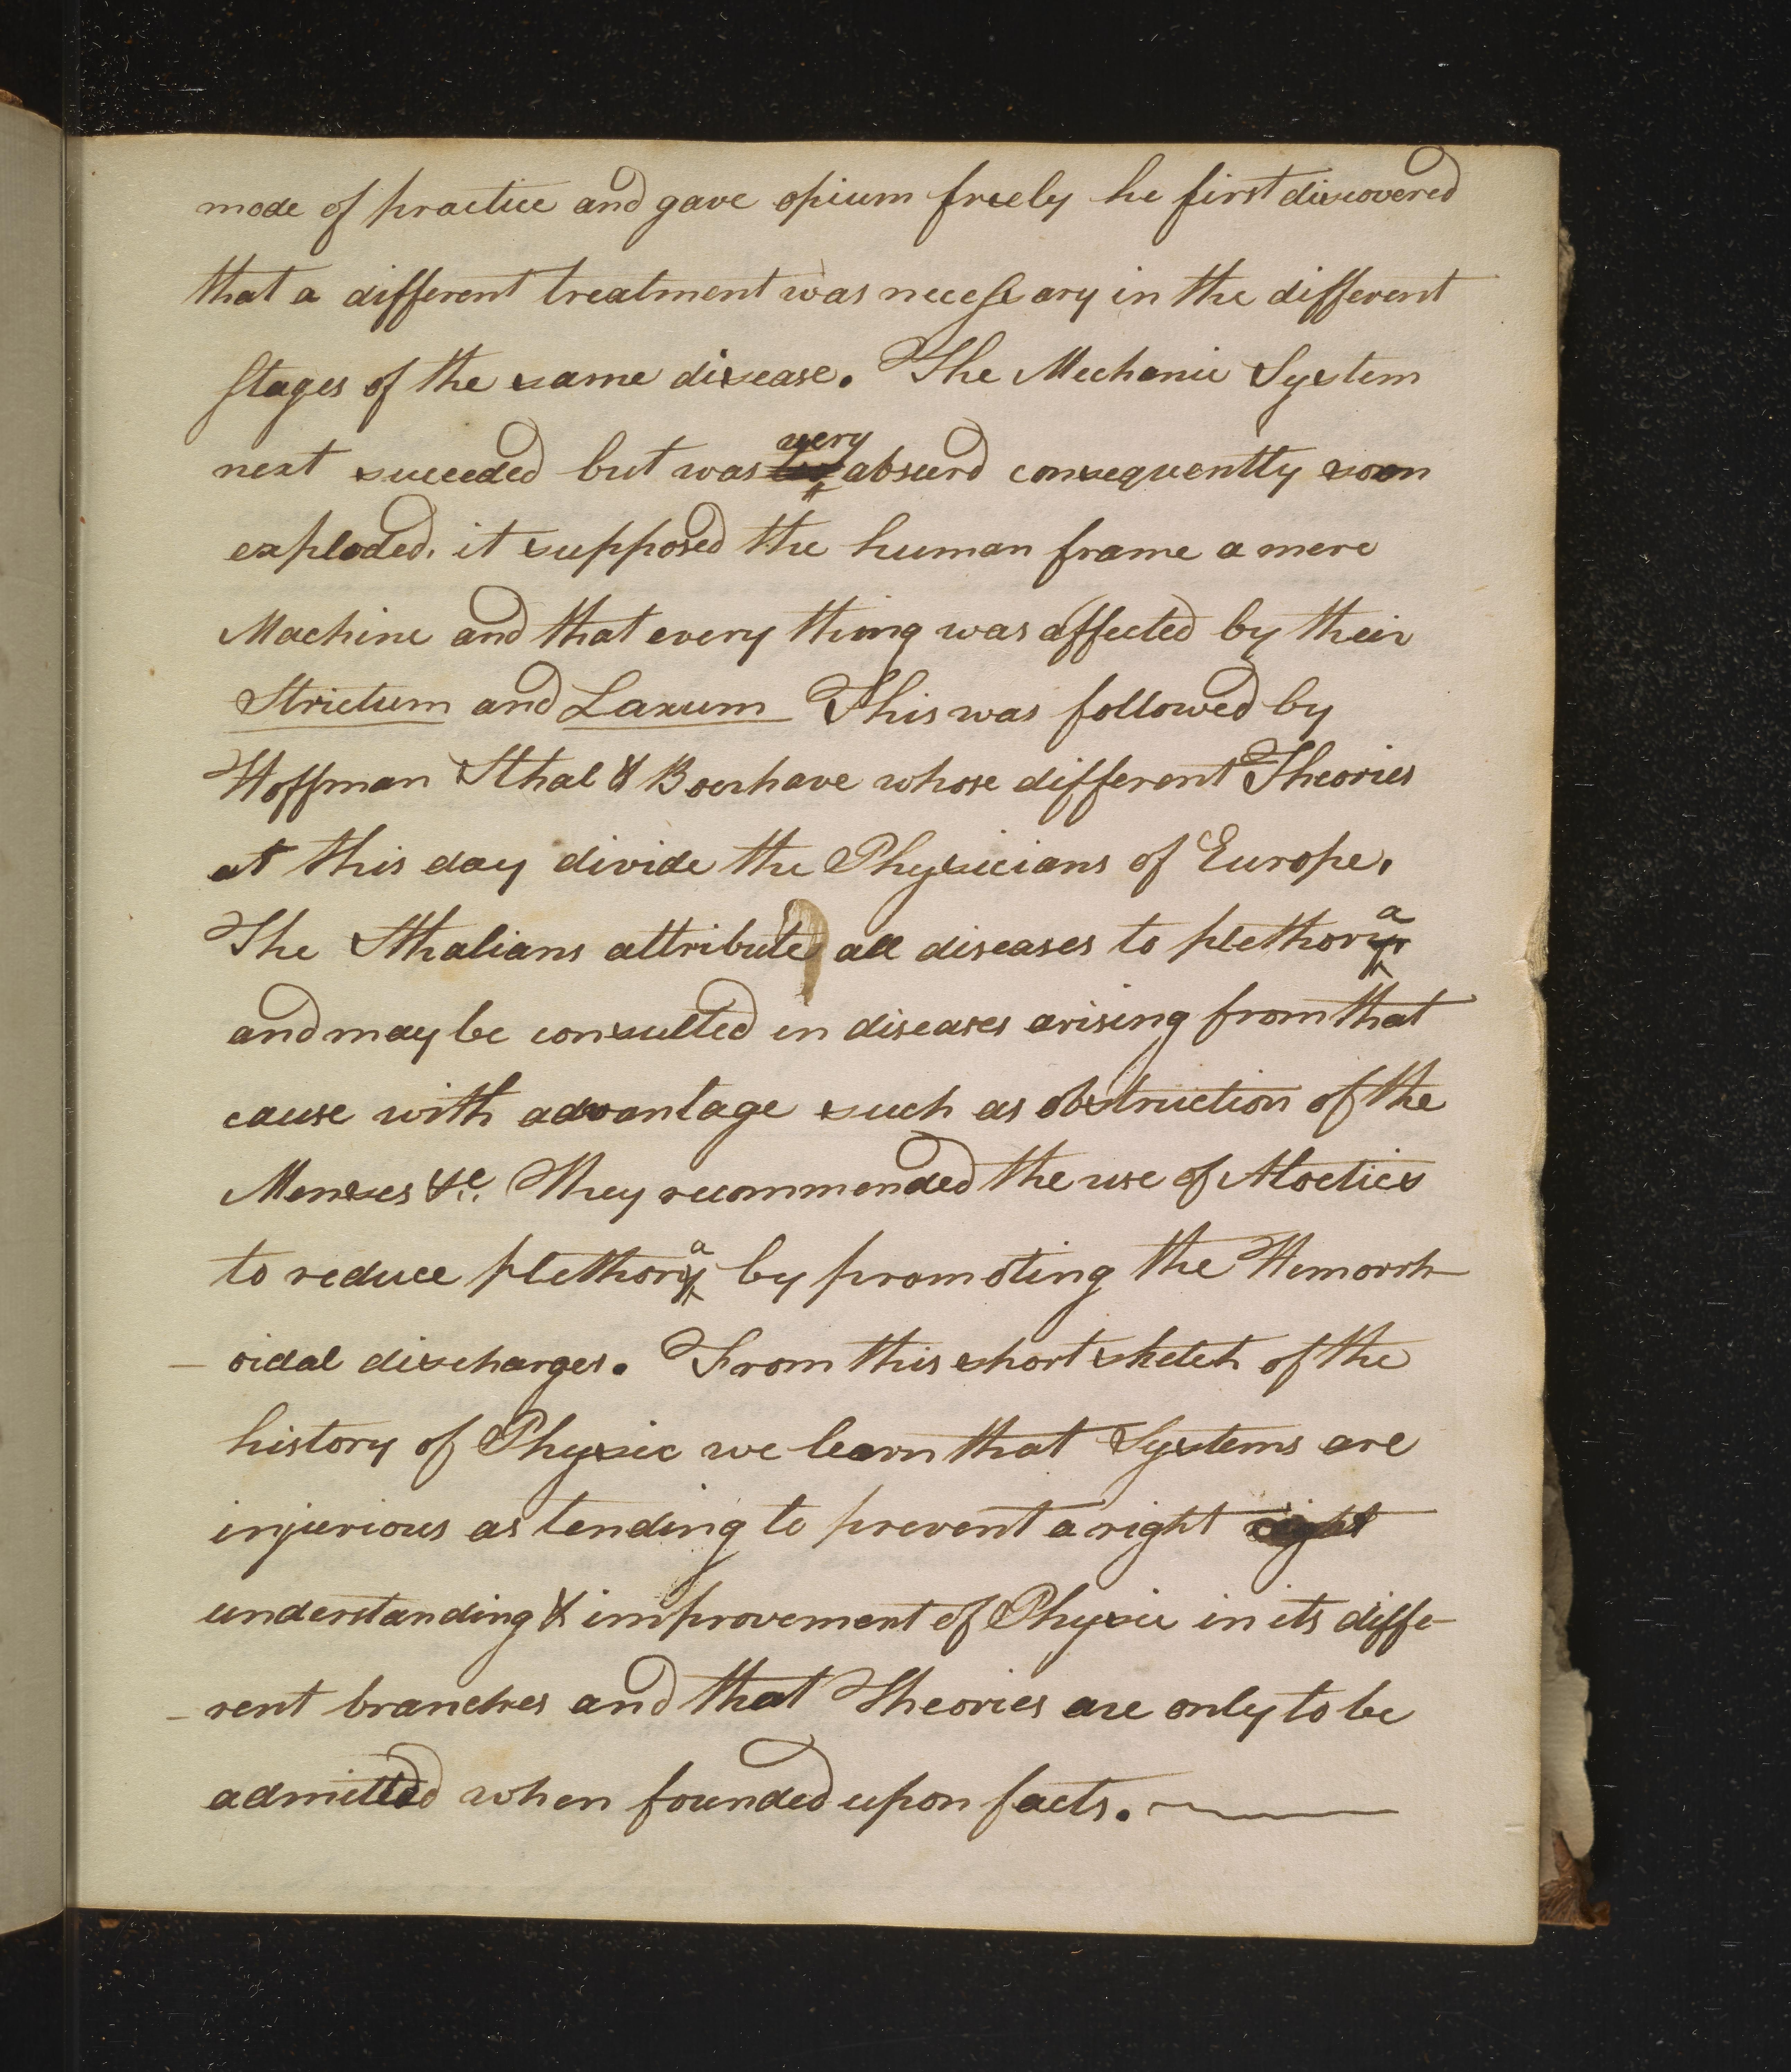 mode of practice and gave opium freely he first discovered
that a different treatment was necessary in the different
stages of the same disease. The Mechanic System
next succeeded but was very absurd consequently soon
exploded, it supposed the human frame a mere
Machine and that every thing was affected by their
Strictum and Laxum This was followed by
Hoffman Sthal & Boerhave whose different Theories
at this day divide the Physicians of Europe.
The Sthalians attribute all diseases to plethora
and may be consulted in diseases arising from that
cause with advantage such as obstruction of the
Menses &c. They recommended the use of Aloetics
to reduce plethora by promoting the Hemorrh-
-oidal discharges. From this short sketch of the
history of Physic we learn that Systems are
injurious as tending to prevent a right right
understanding & improvement of Physic in its diffe-
-rent branches and that Theories are only to be
admitted when founded upon facts.